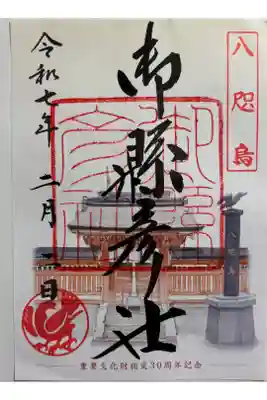 八咫烏
御縣彦社
令和七年 二月 二日
八咫烏
重要文化財指定30周年記念